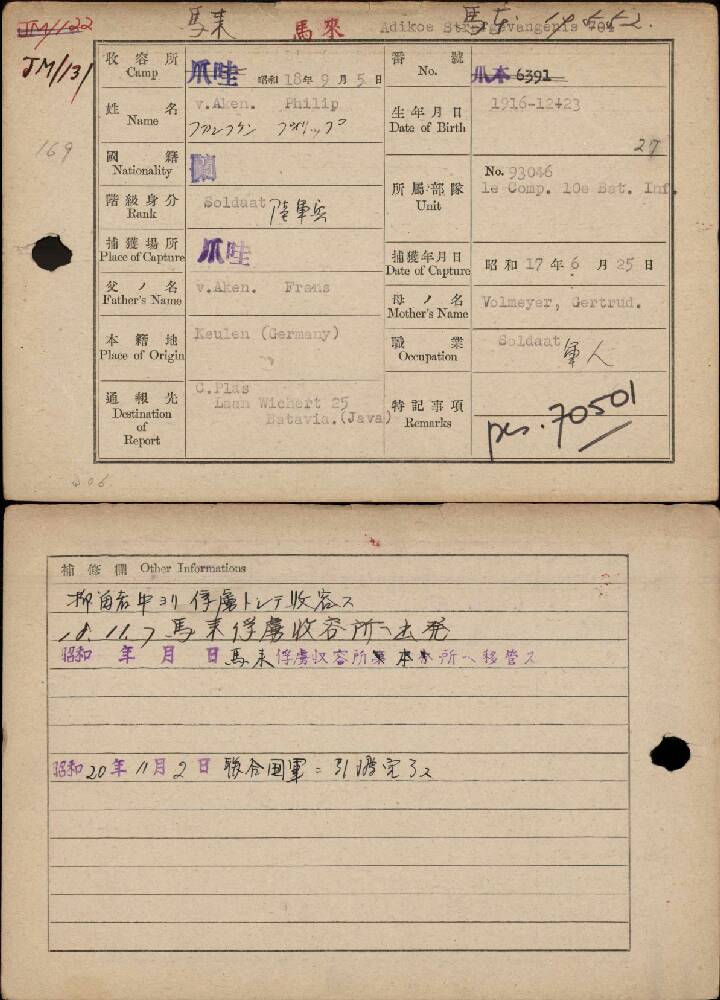 JM/122 馬来 馬來 Adikoe Strafgevangenis 馬来 19552.
JM/131
169
収容所 Camp 爪哇 昭和18年9月5日
番號 No. 爪本 6391
姓名 Name v.Aken. Philip
生年月日 Date of Birth 1916-12-23
27
國籍 Nationality 蘭
所屬部隊 Unit No. 93046
1e Comp. 10e Bat. Inf.
階級身分 Rank Soldaat 陸軍兵
捕獲場所 Place of Capture 爪哇
捕獲年月日 Date of Capture 昭和17年6月25日
父ノ名 Father's Name v.Aken. Frans
母ノ名 Mother's Name Volmeyer, Gertrud.
本籍地 Place of Origin Keulen (Germany)
職業 Occupation Soldaat 軍人
通報先 Destination of Report C.Plas
Laan Wichert 25
Batavia.(Java)
特記事項 Remarks pes. 70501
補修欄 Other Informations
抑留者中ヨリ俘虜トシテ收容ス
18.11.7 馬来俘虜收容所へ出発
昭和 年 月 日 馬来俘虜収容所 本所へ移管ス
昭和20年11月2日 聯合国軍ニ引渡完了ス